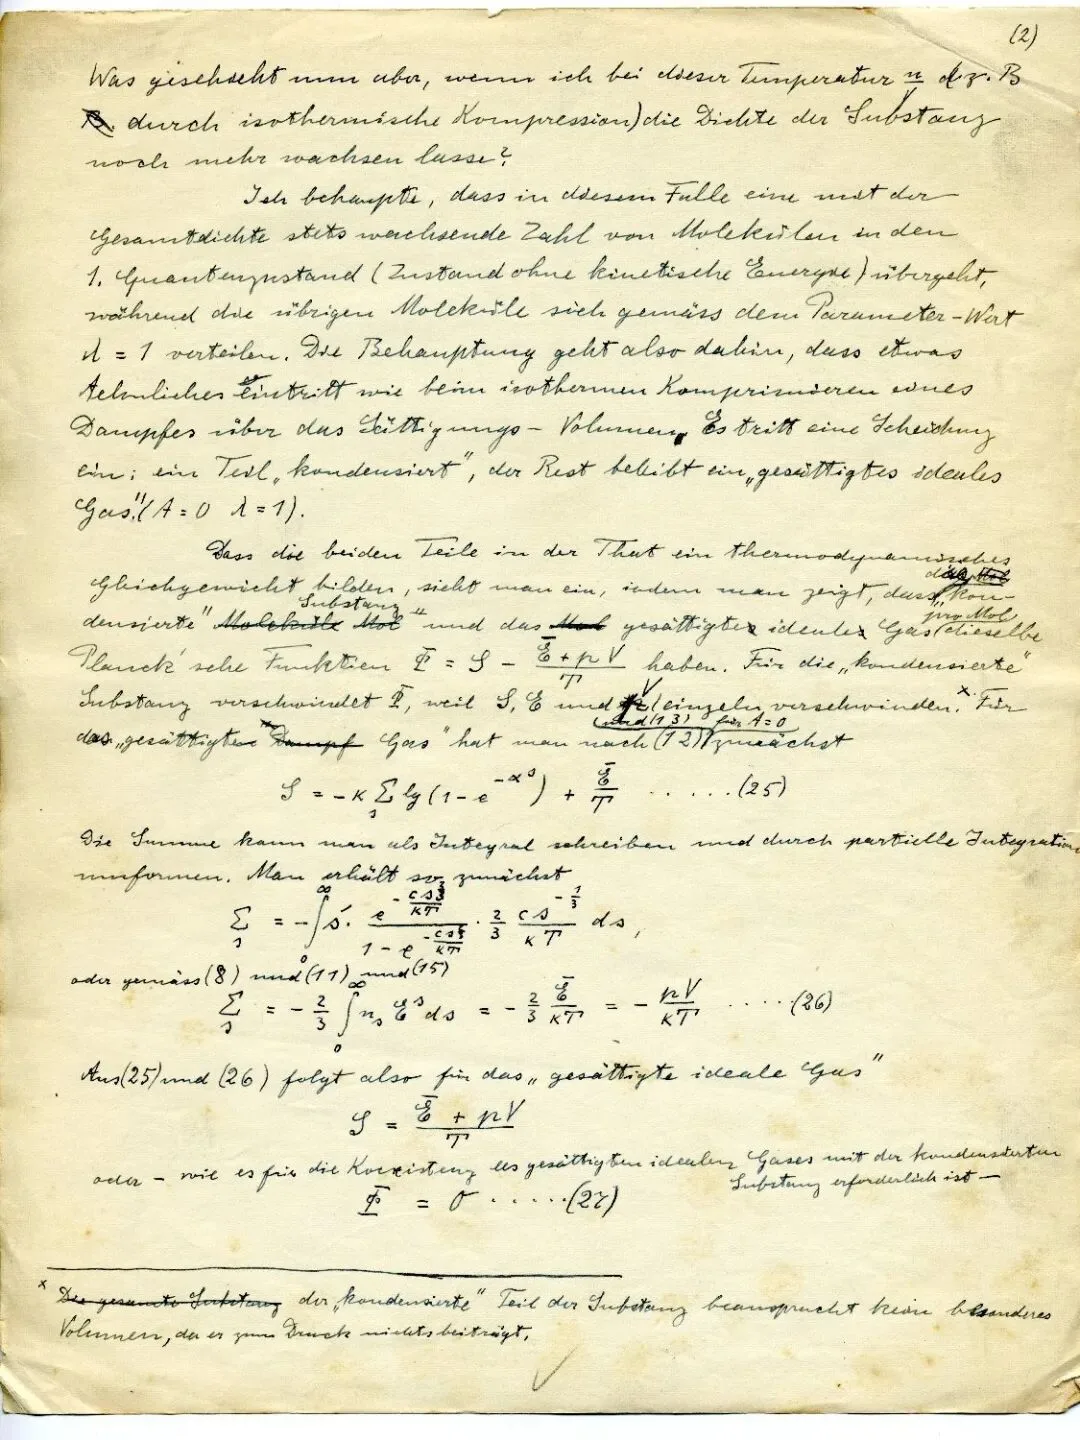 (2)
Was geschieht nun aber, wenn ich bei dieser Temperatur n/V (z. B.
durch isothermische Kompression) die Dichte der Substanz
noch mehr wachsen lasse?
Ich behaupte, dass in diesem Falle eine mit der
Gesamtdichte stets wachsende Zahl von Molekülen in den
1. Quantenzustand (Zustand ohne kinetische Energie) übergeht,
während die übrigen Moleküle sich gemäss dem Parameter-Wert
λ = 1 verteilen. Die Behauptung geht also dahin, dass etwas
Aehnliches eintritt wie beim isothermen Komprimieren eines
Dampfes über das Sättigungs-Volumen. Es tritt eine Scheidung
ein; ein Teil „kondensiert", der Rest bleibt ein „gesättigtes ideales
Gas". (A = 0 λ = 1).
Dass die beiden Teile in der That ein thermodynamisches
Gleichgewicht bilden, sieht man ein, indem man zeigt, dass die „kon-
densierte" Substanz und das gesättigte ideale Gas pro Mol dieselbe
Planck'sche Funktion Φ = S − (Ē + pV)/T haben. Für die „kondensierte"
Substanz verschwindet Φ, weil S, E und V einzeln verschwinden.ˣ Für
das „gesättigte Gas" hat man nach (12) und (13) für A = 0 zunächst
S = −κ Σ_s lg(1 − e^{−αˢ}) + Ē/T . . . . . . (25)
Die Summe kann man als Integral schreiben und durch partielle Integration
umformen. Man erhält so zunächst
Σ_s = −∫₀^∞ s · e^{−cs^{2/3}/κT} / (1 − e^{−cs^{2/3}/κT}) · 2/3 cs^{−1/3}/κT ds,
oder gemäss (8) und (11) und (15)
Σ_s = −2/3 ∫₀^∞ n_s Eˢ ds = −2/3 Ē/κT = −pV/κT . . . . . (26)
Aus (25) und (26) folgt also für das „gesättigte ideale Gas"
S = (Ē + pV)/T
oder – wie es für die Koexistenz des gesättigten idealen Gases mit der kondensierten
Substanz erforderlich ist –
Φ = 0 . . . . . . (27)
ˣ Die gesamte Substanz der „kondensierte" Teil der Substanz beansprucht kein besonderes
Volumen, da er zum Druck nichts beiträgt.